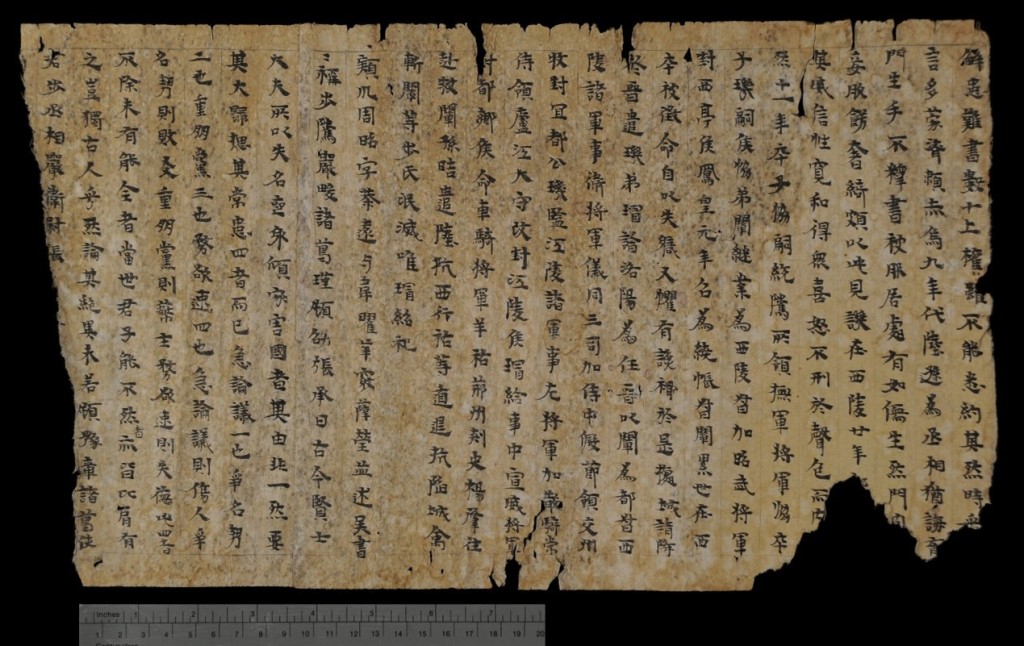 解患難書數十上權雖不能悉納其然時采
言多蒙濟賴赤烏九年代陸遜為丞相猶誨育
門生手不釋書被服居處有如儒生然門內
妾服飾奢綺頗以此見譏在西陵廿年
其威信性寬和得衆喜怒不形於聲色而內
然十一年卒子協嗣統騭所領撫軍將軍協卒
子璣嗣侯協弟闡繼業為西陵督加昭武將軍
封西亭侯鳳皇元年召為繞帳督闡累世在西
卒被徵命自以失職又懼有讒禍於是據城請降
於晉遣璣弟璿詣洛陽為任晉以闡為都督西
陵諸軍事衛將軍儀同三司加侍中假節領交州
牧封宜都公璣監江陵諸軍事左將軍加散騎常
侍領廬江太守改封江陵侯璿給事中宣威將軍
封都鄉侯命車騎將軍羊祜荊州刺史楊肇往
赴救闡孫晧遣陸抗西行祜等遁退抗陷城禽
斬闡等步氏泯滅唯璿紹祀
潁川周昭字恭遠与韋曜華覈薛瑩並述吳書
之稱步騭嚴畯諸葛瑾顧劭張承曰古今賢士
大夫所以失名喪身傾家害國者其由非一然要
其大歸揔其常患四者而已急論議一也爭名勢
二也重朋黨三也務欲速四也急論議則傷人爭
名勢則敗友重朋黨則蔽主務欲速則失德此四者
不除未有能全者當世君子能不然者亦皆比肩有
之豈獨古人乎然論其絕異未若顧豫章諸葛使
者步丞相嚴衛尉張